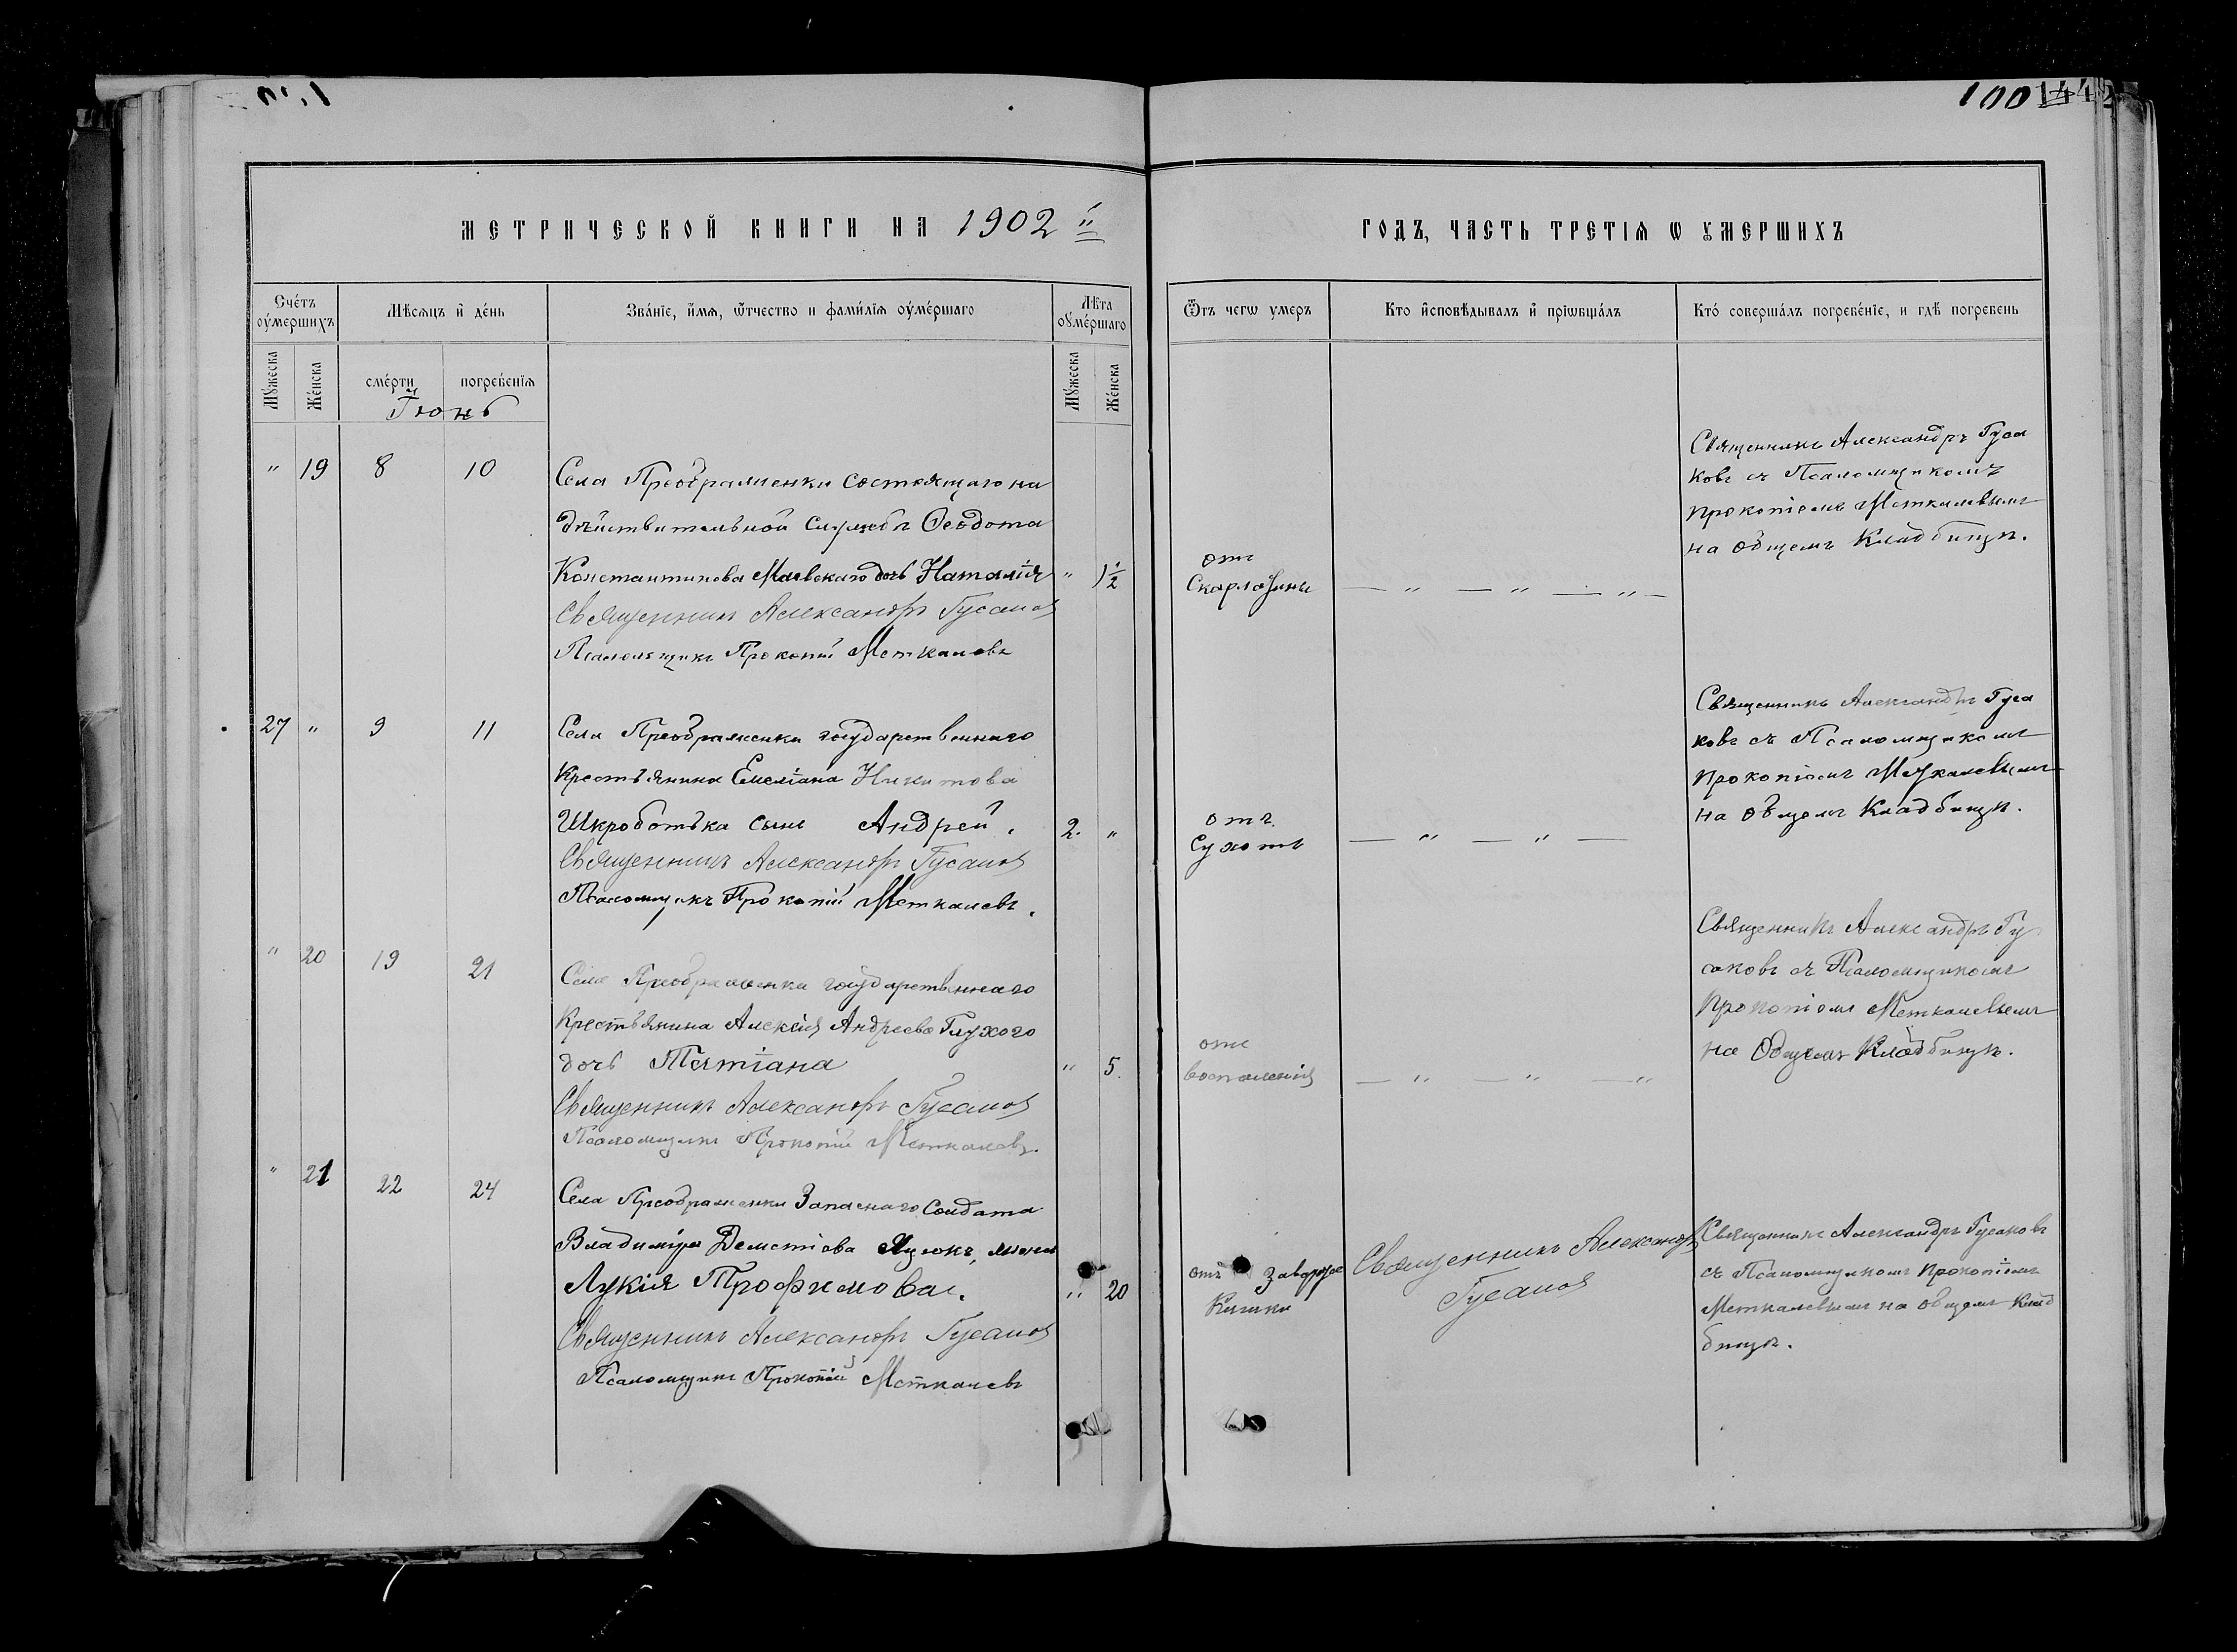 100 1442
МЕТРИЧЕСКОЙ КНИГИ НА 1902 й
ГОДЪ, ЧАСТЬ ТРЕТІѦ Ѡ ОУМЕРШИХЪ
Сче́тъ оу҆ме́ршихъ
Мѣ́сѧцъ и҆ де́нь
Зва́нїе, и҆́мѧ, ѿтчество и фами́лїѧ оу҆ме́ршаго
Лѣ́та оу҆ме́ршаго
Ѿтъ чегѡ умеръ
Кто и҆сповѣ́дывалъ и҆ прїѡбща́лъ
Кто́ соверша́лъ погребе́нїе, и гдѣ̀ погребенъ
Му́жеска
Же́нска
сме́рти
погребе́нїѧ
Му́жеска
Же́нска
Іюнь
" 19 8 10
Села Преображенки состоящаго на
дѣйствительной службѣ Ѳеодота
Константинова Маевскаго дочь Наталія
" 1½
Священникъ Александръ Гусаков
Псаломщикъ Прокопій Меткалевъ
отъ
Скарлатины
— " — " — " —
Священникъ Александръ Гуса
ковъ съ Псаломщикомъ
Прокопіемъ Меткалевымъ
на общемъ Кладбищѣ.
27 " 9 11
Села Преображенки государственнаго
Крестьянина Емеліана Никитова
Шкроботька сынъ Андрей.
2. "
Священникъ Александръ Гусаков
Псаломщикъ Прокопій Меткалевъ.
отъ
Сухотъ
— " — " —
Священникъ Александръ Гуса
ковъ съ Псаломщикомъ
Прокопіемъ Меткалевымъ
на общемъ Кладбищѣ.
" 20 19 21
Села Преображенки государственнаго
Крестьянина Алексія Андреева Глухого
дочь Татіана
" 5.
Священникъ Александръ Гусаков
Псаломщикъ Прокопій Меткалевъ.
отъ
воспаленія
— " — " — "
Священникъ Александръ Гу
саковъ съ Псаломщикомъ
Прокопіемъ Меткалевымъ
на Общемъ Кладбищѣ.
" 21 22 24
Села Преображенки Запаснаго Солдата
Владиміра Дементіева жена
Лукія Трофимова.
" 20
Священникъ Александръ Гусаков
Псаломщикъ Прокопій Меткалевъ
отъ
Кишки
Священникъ Александръ
Гусаков
Священникъ Александръ Гусаковъ
съ Псаломщикомъ Прокопіемъ
Меткалевымъ на общемъ Клад
бищѣ.